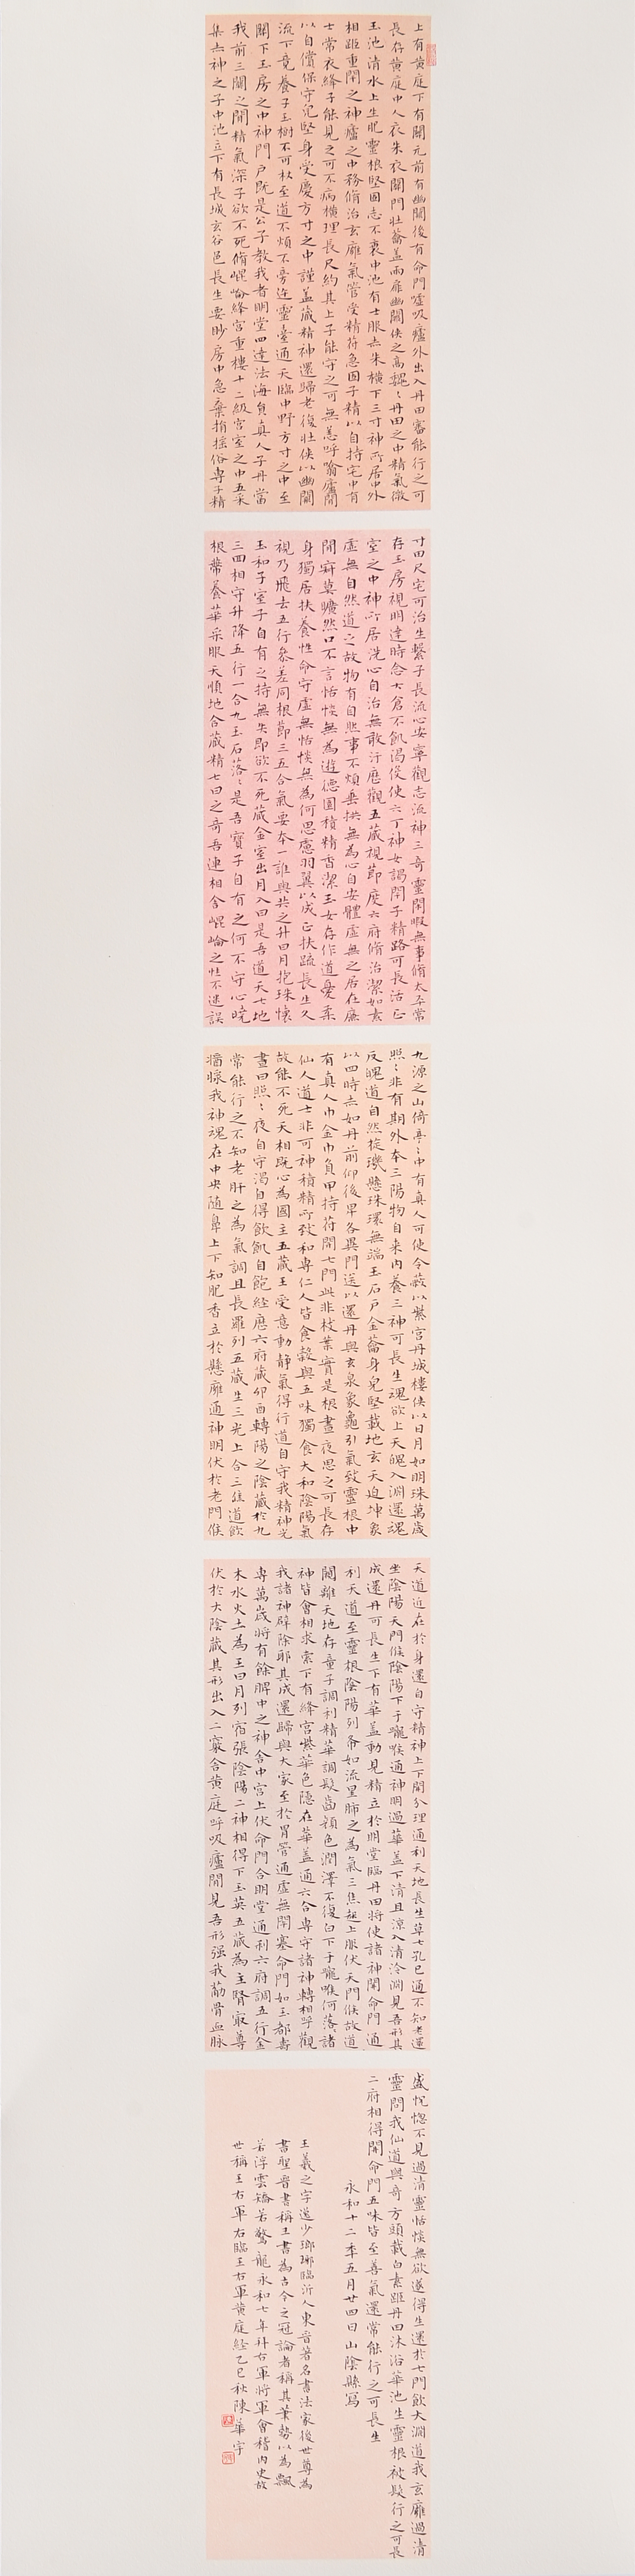 上有黃庭下有關元前有幽關後有命門噓吸廬外出入丹田審能行之可
長存黃庭中人衣朱衣關門壯蘥蓋兩扉幽關俠之高巍〻丹田之中精氣微
玉池清水上生肥靈根堅固志不衰中池有士服赤朱橫下三寸神所居中外
相距重閉之神廬之中務脩治玄廱氣管受精符急固子精以自持宅中有
士常衣絳子能見之可不病橫理長尺約其上子能守之可無恙呼噏廬間
以自償保守完堅身受慶方寸之中謹蓋藏精神還歸老復壯俠以幽關
流下竟養子玉樹不可杖至道不煩不旁迕靈臺通天臨中野方寸之中至
關下玉房之中神門戶既是公子教我者明堂四達法海員真人子丹當
我前三關之間精氣深子欲不死脩崐崘絳宮重樓十二級宮室之中五采
集赤神之子中池立下有長城玄谷邑長生要眇房中急棄捐搖俗專子精
寸田尺宅可治生繫子長流心安寧觀志流神三奇靈閑暇無事脩太平常
存玉房視明達時念大倉不飢渴役使六丁神女謁閉子精路可長活正
室之中神所居洗心自治無敢汙歷觀五藏視節度六府脩治潔如素
虛無自然道之故物有自然事不煩垂拱無為心自安體虛無之居在廉
間寂莫曠然口不言恬惔無為遊德園積精香潔玉女存作道憂柔
身獨居扶養性命守虛無恬惔無為何思慮羽翼以成正扶疏長生久
視乃飛去五行參差同根節三五合氣要本一誰與共之升日月抱珠懷
玉和子室子自有之持無失即欲不死藏金室出月入日是吾道天七地
三回相守升降五行一合九玉石落〻是吾寶子自有之何不守心曉
根蒂養華采服天順地合藏精七日之奇吾連相合崐崘之性不迷誤
九源之山何亭〻中有真人可使令蔽以紫宮丹城樓俠以日月如明珠萬歲
照〻非有期外本三陽物自來內養三神可長生魂欲上天魄入淵還魂
反魄道自然旋璣懸珠環無端玉石戶金蘥身完堅載地玄天迫乾坤象
以四時赤如丹前仰後卑各異門送以還丹與玄泉象龜引氣致靈根中
有真人巾金巾負甲持符開七門此非枝葉實是根晝夜思之可長存
仙人道士非可神積精所致和專仁人皆食穀與五味獨食大和陰陽氣
故能不死天相既心為國主五藏王受意動靜氣得行道自守我精神光
晝日照〻夜自守渴自得飲飢自飽經歷六府藏卯酉轉陽之陰藏於九
常能行之不知老肝之為氣調且長羅列五藏生三光上合三焦道飲
醬漿我神魂在中央隨鼻上下知肥香立於懸廱通神明伏於老門候
天道近在於身還自守精神上下開分理通利天地長生草七孔已通不知老還
坐陰陽天門候陰陽下于嚨喉通神明過華蓋下清且涼入清泠淵見吾形其
成還丹可長生下有華蓋動見精立於明堂臨丹田將使諸神開命門通
利天道至靈根陰陽列布如流星肺之為氣三焦起上服伏天門候故道
闚離天地存童子調利精華調髮齒顏色潤澤不復白下于嚨喉何落〻諸
神皆會相求索下有絳宮紫華色隱在華蓋通六合專守諸神轉相呼觀
我諸神辟除耶其成還歸與大家至於胃管通虛無閉塞命門如玉都壽
專萬歲將有餘脾中之神舍中宮上伏命門合明堂通利六府調五行金
木水火土為王日月列宿張陰陽二神相得下玉英五藏為主腎最尊
伏於大陰藏其形出入二竅合黃庭呼吸廬間見吾形强我筋骨血脉
盛怳惚不見過清靈恬惔無欲遂得生還於七門飲大淵道我玄廱過清
靈問我仙道與奇方頭載白素距丹田沐浴華池生靈根被髮行之可長
二府相得開命門五味皆至善氣還常能行之可長生
永和十二年五月廿四日山陰縣寫
王羲之字逸少瑯琊臨沂人東晉著名書法家後世尊為
書聖晉書稱王書為古今之冠論者稱其筆勢以為飄
若浮雲矯若驚龍永和七年拜右軍將軍會稽內史故
世稱王右軍右臨王右軍黃庭經乙巳秋陳華宇